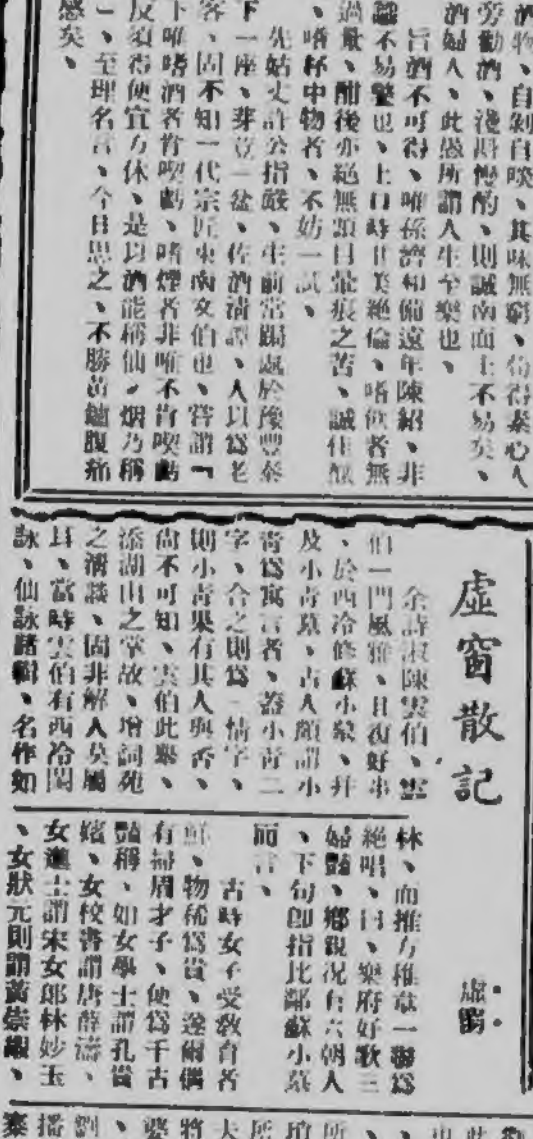 酒物、自剝自啖、其味無窮、苟得素心人
旁勸酒、淺斟慢酌、則誠南面王不易矣、
酒婦人、此愚所謂人生至樂也、
旨酒不可得、唯孫濟和備遠年陳紹、非
識不易鑒也、上口時甘美絕倫、嗜飲者無
過量、酣後亦絕無頭目暈痕之苦、誠佳釀
、嗜杯中物者、不妨一試、
先姑丈許公指嚴、生前常踞處於豫豐泰
下一座、芽荳一盆、佐酒清譚、人以爲老
客、固不知一代宗匠東南文伯也、嘗謂『
下唯嗜酒者肯喫虧、嗜煙者非唯不肯喫虧
反須得便宜方休、是以酒能稱仙、烟乃稱
』、至理名言、今日思之、不勝黃罏腹痛
感矣、
虛窗散記
虛窗
余詩淑陳雲伯、雲
伯一門風雅、且復好事
、於西泠修蘇小墓、幷
及小靑墓、古人頗謂小
靑爲寓言者、蓋小靑二
字、合之則爲一情字、
則小靑果有其人與否、
尙不可知、雲伯此舉、
添湖山之掌故、增詞苑
之清談、固非解人莫屬
耳、當時雲伯有西泠閨
詠、仙詠諸輯、名作如
林、而推方稚韋一聯爲
絕唱、曰、樂府好歌三
婦豔、鄉親况有六朝人
、下句卽指比鄰蘇小墓
而言、
古時女子受敎育者
鮮、物稀爲貴、遂爾偶
有掃眉才子、便爲千古
豔稱、如女學士謂孔貴
嬪、女校書謂唐薛濤、
女進士謂宋女郎林妙玉
、女狀元則謂黃崇嘏、